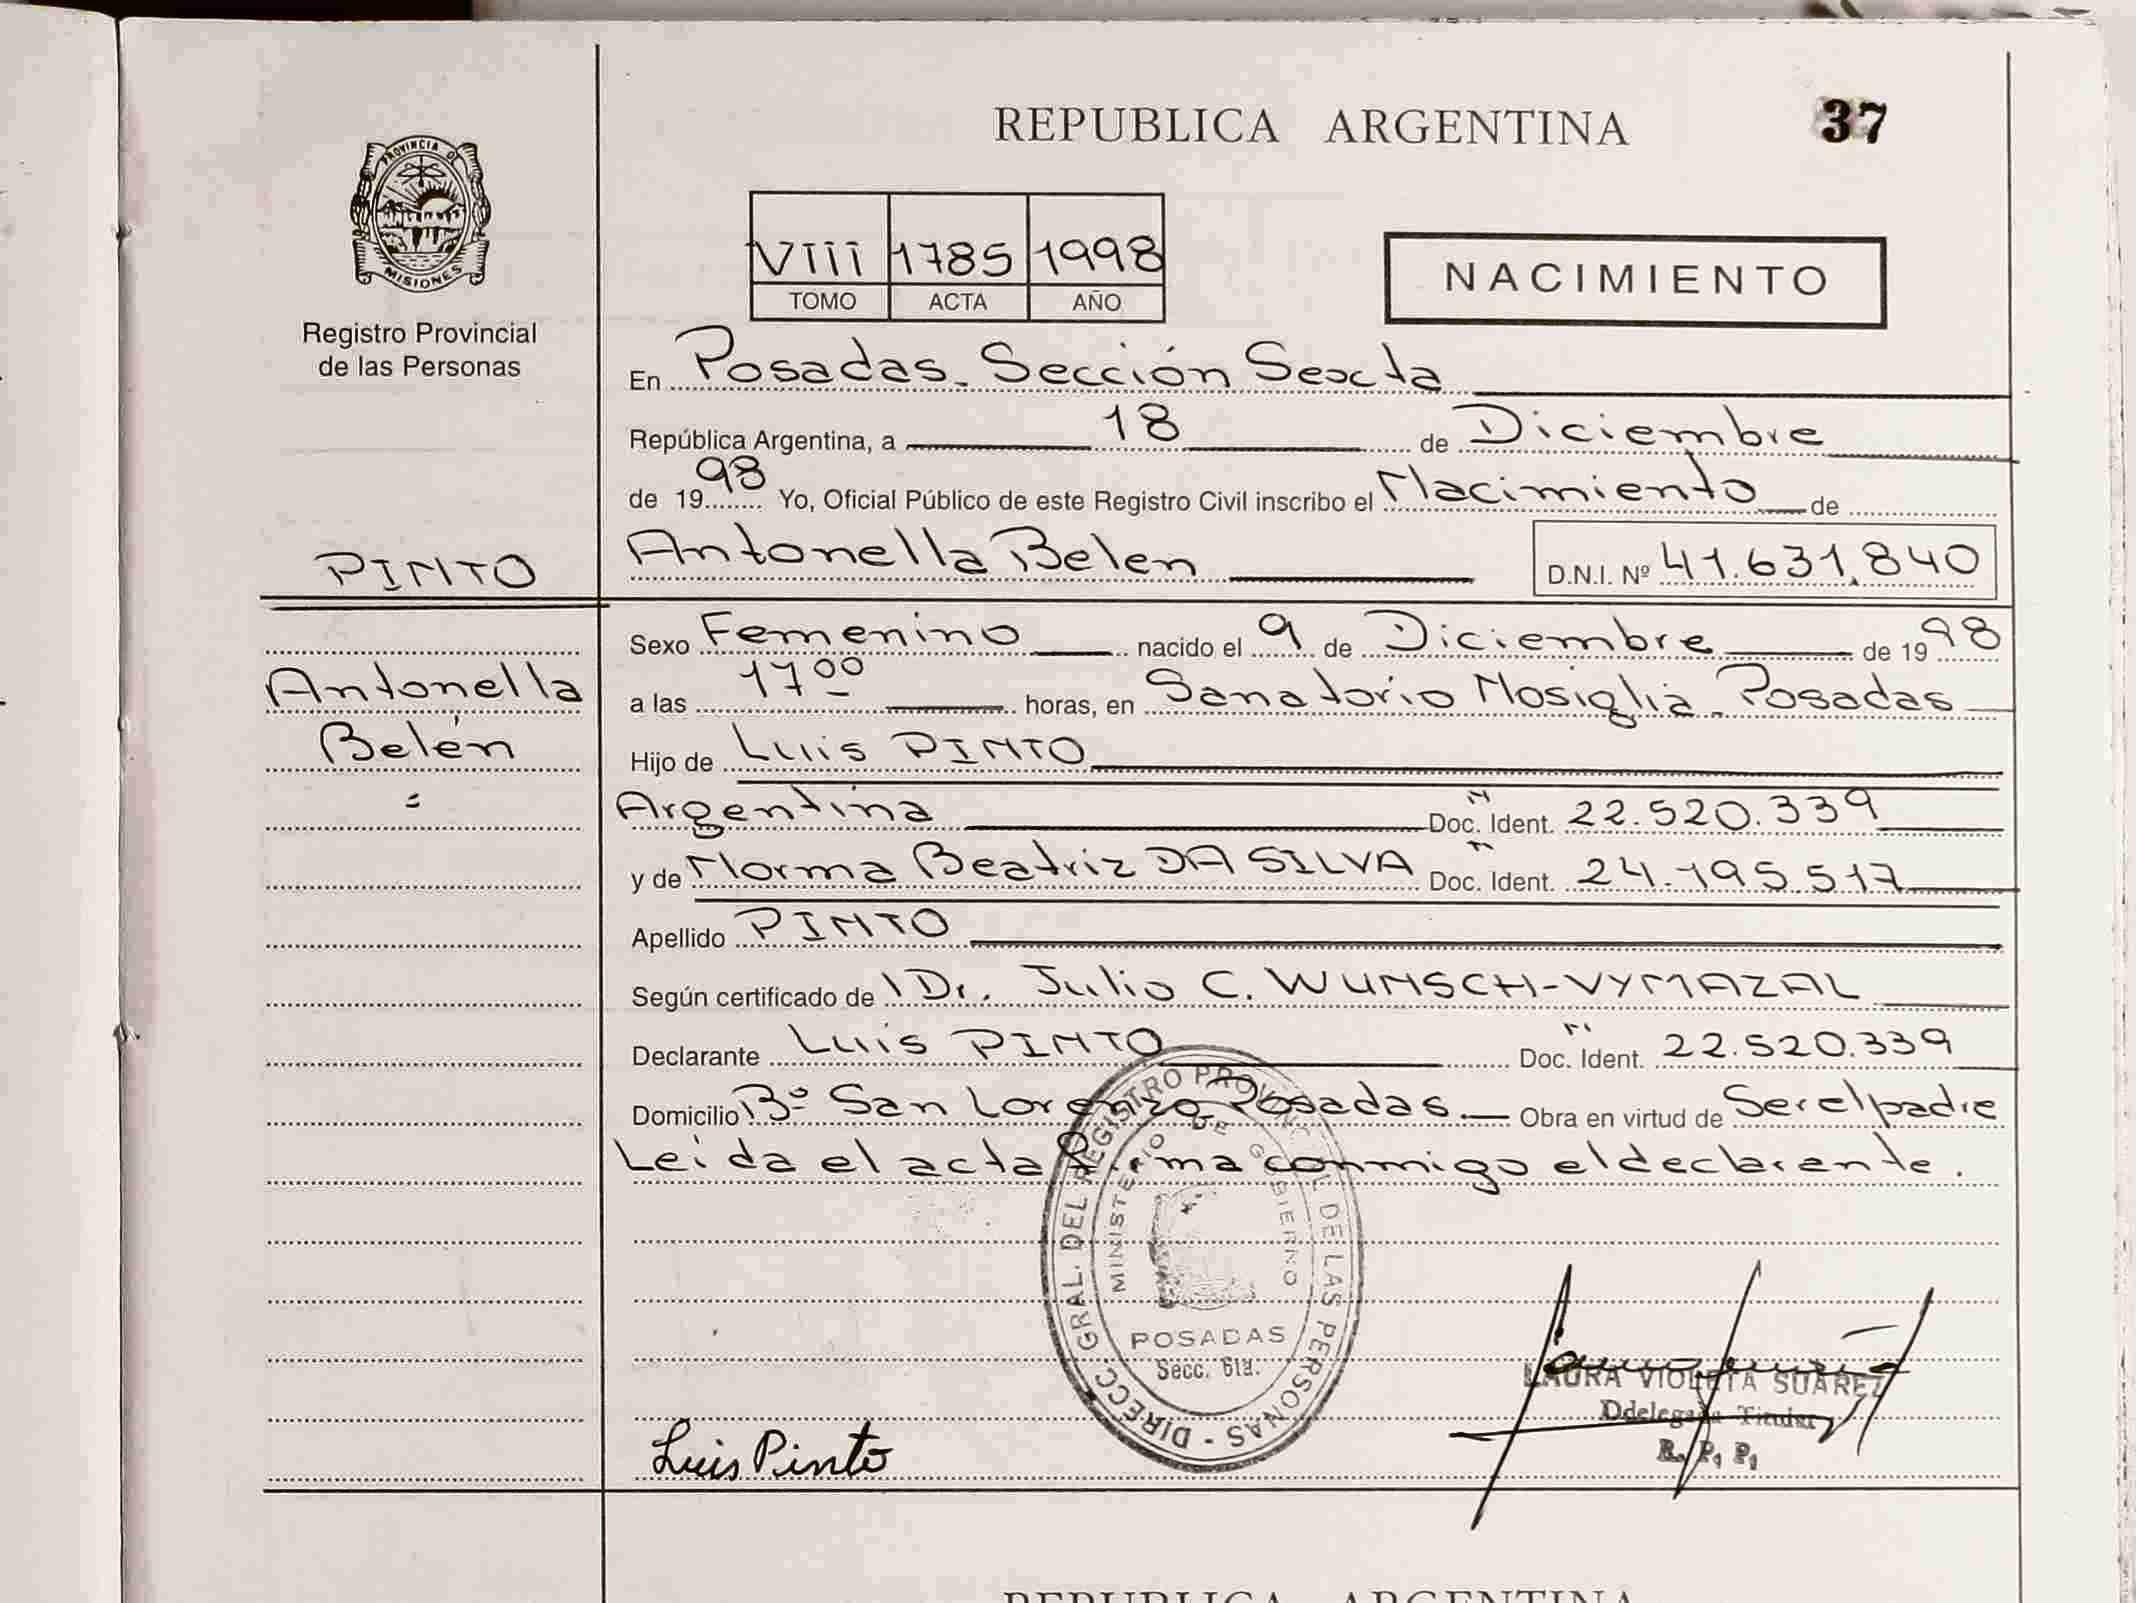 REPUBLICA ARGENTINA
37
PROVINCIA DE
MISIONES
Registro Provincial
de las Personas
VIII 1785 1998
TOMO ACTA AÑO
NACIMIENTO
En Posadas. Sección Sexta
República Argentina, a 18 de Diciembre
de 1998 Yo, Oficial Público de este Registro Civil inscribo el Nacimiento de
PINTO
Antonella Belen D.N.I. Nº 41.631.840
Antonella
Belén
Sexo Femenino nacido el 9 de Diciembre de 1998
a las 17 00 horas, en Sanatorio Nosiglia. Posadas
Hijo de Luis PINTO
Argentina Doc. Ident. 22.520.339
y de Norma Beatriz DA SILVA Doc. Ident. 24.195.517
Apellido PINTO
Según certificado de Dr. Julio C. WUNSCH-VYMAZAL
Declarante Luis PINTO Doc. Ident. 22.520.339
Domicilio Bº San Lorenzo Posadas. Obra en virtud de Ser el padre
Leída el acta firma conmigo el declarente.
DIRECC. GRAL. DEL REGISTRO PROVINCIAL DE LAS PERSONAS -
MINISTERIO DE GOBIERNO
POSADAS
Secc. 6ta.
Luis Pinto
LAURA VIOLETA SUAREZ
Ddelegada Titular
R. P. P.
REPUBLICA ARGENTINA